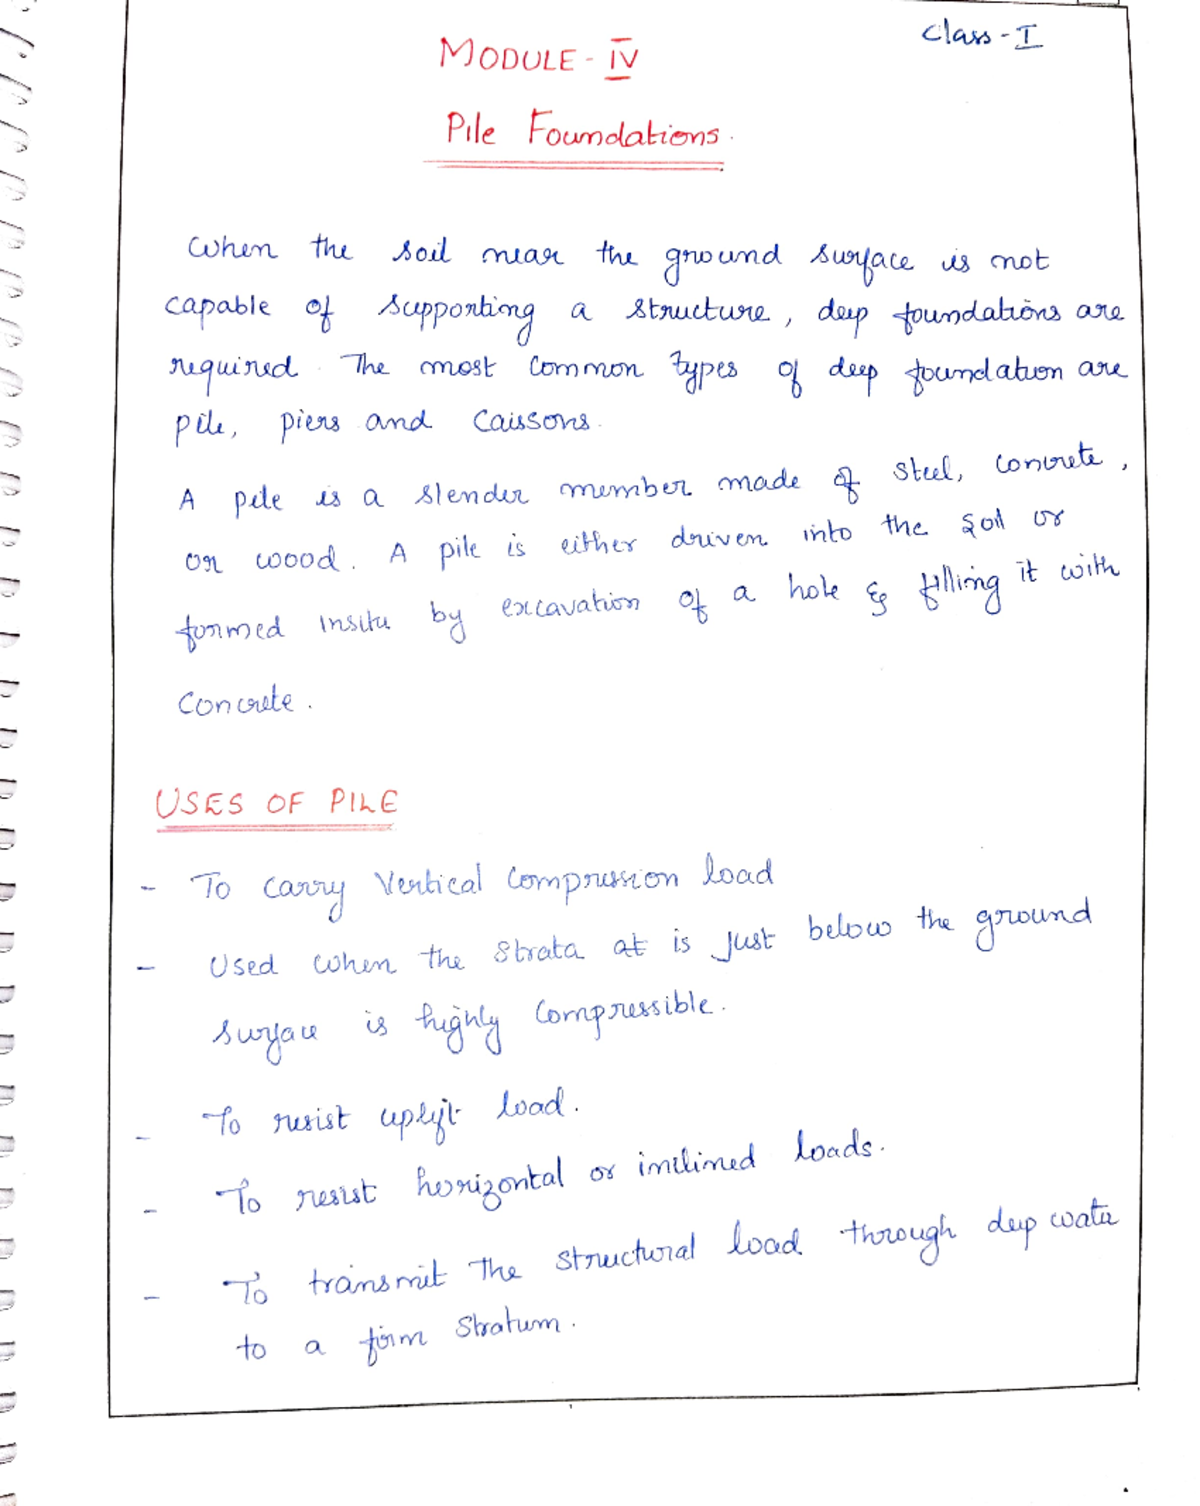 Class - I
MODULE - IV
Pile Foundations.
When the soil near the ground surface is not
capable of supporting a structure, deep foundations are
required. The most common types of deep foundation are
pile, piers and caissons.
A pile is a slender member made of steel, concrete,
or wood. A pile is either driven into the soil or
formed insitu by excavation of a hole & filling it with
concrete.
USES OF PILE
- To carry vertical compression load
- Used when the strata at is just below the ground
surface is highly compressible.
- To resist uplift load.
- To resist horizontal or inclined loads.
- To transmit the structural load through deep water
to a firm stratum.